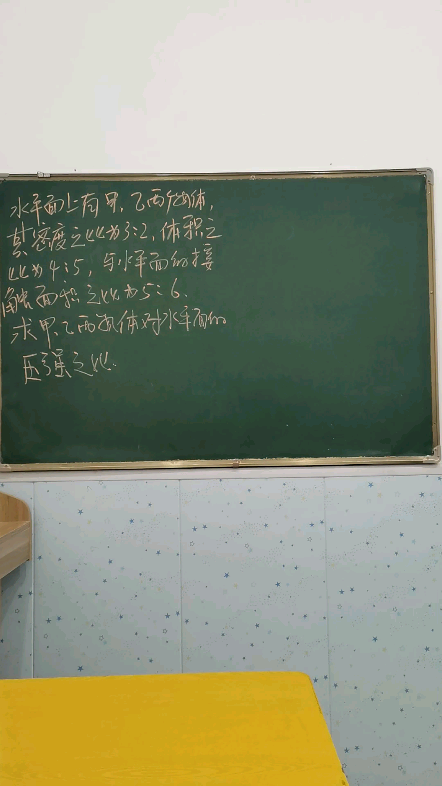 水平面上有甲、乙两个物体,
其密度之比为3:2,体积之
比为4:5,与水平面的接
触面积之比为5:6.
求甲、乙两物体对水平面的
压强之比.